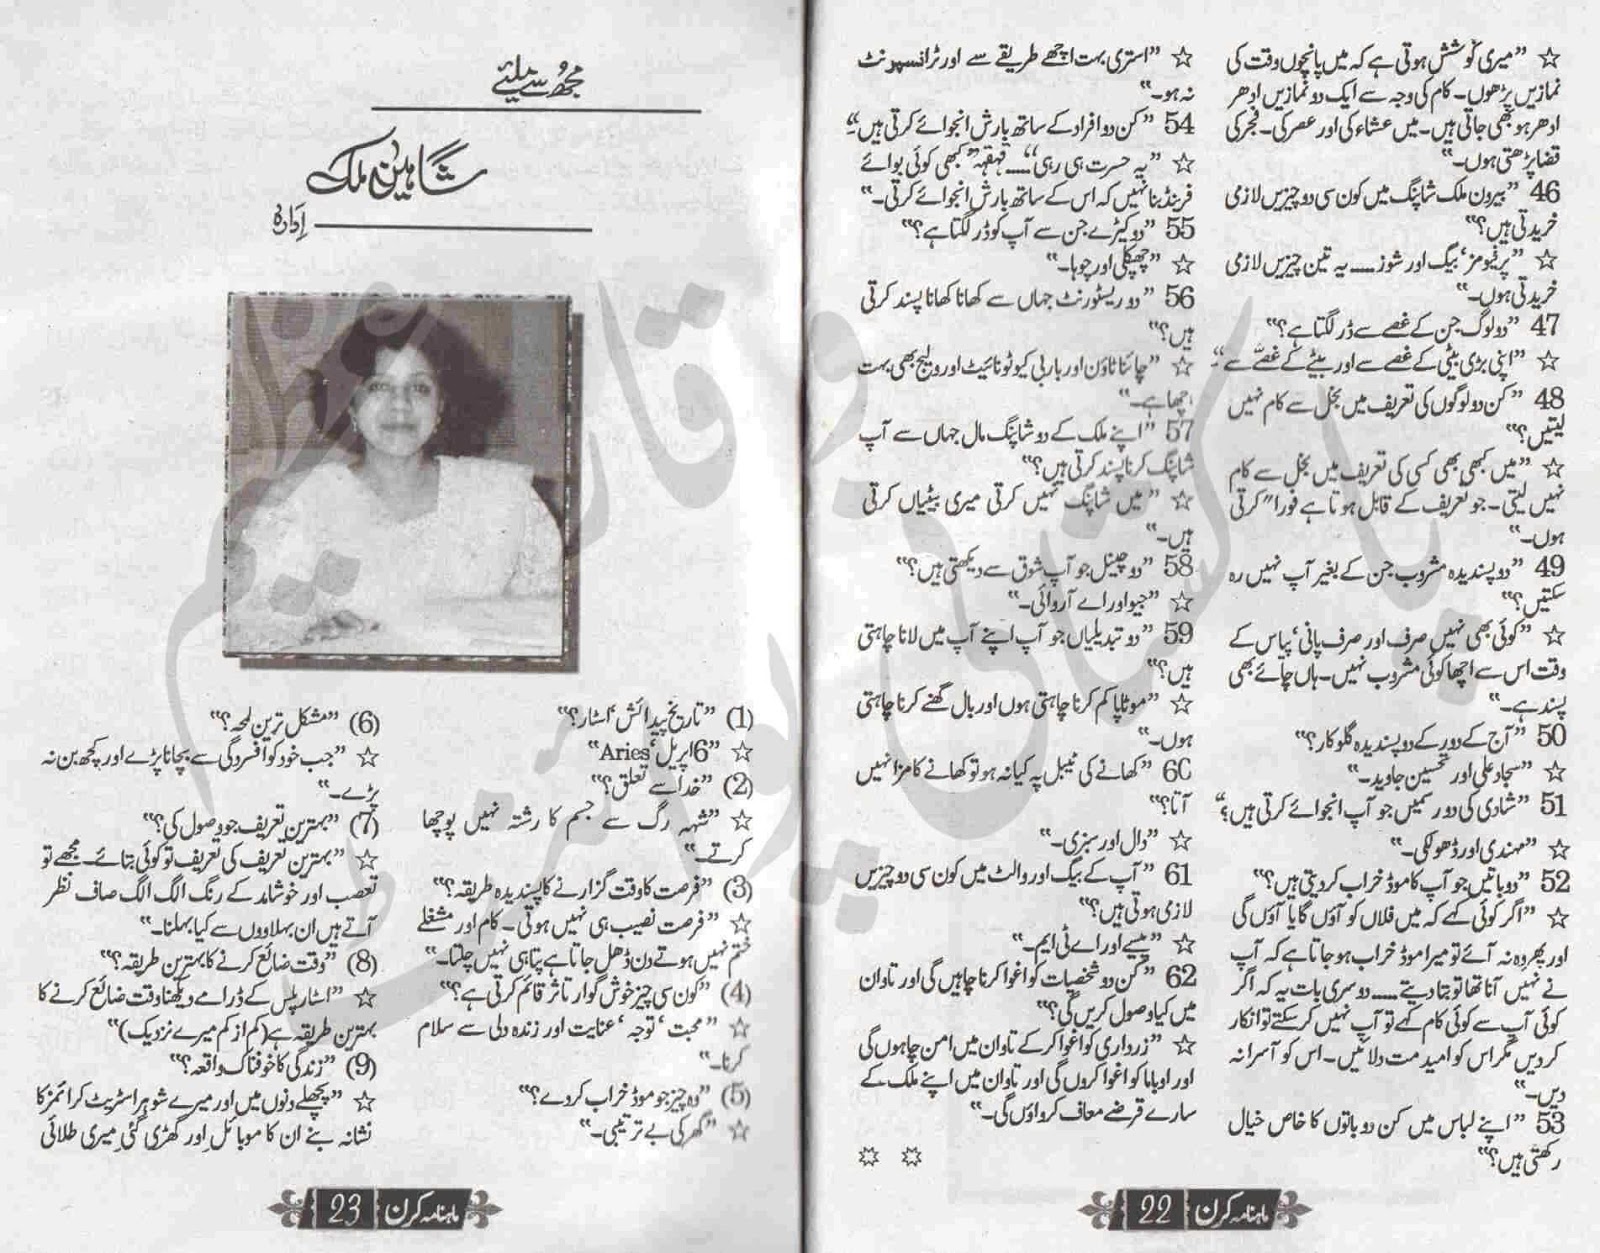 ☆ ”میری کوشش ہوتی ہے کہ میں پانچوں وقت کی
نمازیں پڑھوں۔ کام کی وجہ سے ایک دو نمازیں ادھر
ادھر ہو بھی جاتی ہیں۔ میں عشاء کی اور عصر کی۔ فجر کی
قضا پڑھتی ہوں۔“
46 ”بیرون ملک شاپنگ میں کون سی دو چیزیں لازمی
خریدتی ہیں؟“
☆ ”پرفیومز‘ بیگ اور شوز...... یہ تین چیزیں لازمی
خریدتی ہوں۔“
47 ”دو لوگ جن کے غصے سے ڈر لگتا ہے؟“
☆ ”اپنی بڑی بیٹی کے غصے سے اور بیٹے کے غصے سے۔“
48 ”کن دو لوگوں کی تعریف میں بخل سے کام نہیں
لیتیں؟“
☆ ”میں کبھی بھی کسی کی تعریف میں بخل سے کام
نہیں لیتی۔ جو تعریف کے قابل ہوتا ہے فورا“ کرتی
ہوں۔“
49 ”دو پسندیدہ مشروب جن کے بغیر آپ نہیں رہ
سکتیں؟“
☆ ”کوئی بھی نہیں صرف اور صرف پانی‘ پیاس کے
وقت اس سے اچھا کوئی مشروب نہیں۔ ہاں چائے بھی
پسند ہے۔“
50 ”آج کے دور کے دو پسندیدہ گلوکار؟“
☆ ”سجاد علی اور تحسین جاوید۔“
51 ”شادی کی دو رسمیں جو آپ انجوائے کرتی ہیں؟“
☆ ”مہندی اور ڈھولکی۔“
52 ”دو باتیں جو آپ کا موڈ خراب کر دیتی ہیں؟“
☆ ”اگر کوئی کہے کہ میں فلاں کو آؤں گا یا آؤں گی
اور پھر وہ نہ آئے تو میرا موڈ خراب ہو جاتا ہے کہ آپ
نے نہیں آنا تھا تو بتا دیتے...... دوسری بات یہ کہ اگر
کوئی آپ سے کوئی کام کہے تو آپ نہیں کر سکتے تو انکار
کر دیں مگر اس کو امید مت دلائیں۔ اس کو آسرا نہ
دیں۔“
53 ”اپنے لباس میں کن دو باتوں کا خاص خیال
رکھتی ہیں؟“
☆ ”استری بہت اچھے طریقے سے اور ٹرانسپرنٹ
نہ ہو۔“
54 ”کن دو افراد کے ساتھ بارش انجوائے کرتی ہیں“
☆ ”یہ حسرت ہی رہی‘‘..... قہقہہ ”کبھی کوئی بوائے
فرینڈ بنا نہیں کہ اس کے ساتھ بارش انجوائے کرتی۔“
55 ”دو کیڑے جن سے آپ کو ڈر لگتا ہے؟“
☆ ”چھپکلی اور چوہا۔“
56 ”دو ریسٹورنٹ جہاں سے کھانا کھانا پسند کرتی
ہیں؟“
☆ ”چائنا ٹاؤن اور باربی کیو ٹونائیٹ اور ویلیج بھی بہت
اچھا ہے۔“
57 ”اپنے ملک کے دو شاپنگ مال جہاں سے آپ
شاپنگ کرنا پسند کرتی ہیں؟“
☆ ”میں شاپنگ نہیں کرتی میری بیٹیاں کرتی
ہیں۔“
58 ”دو چینل جو آپ شوق سے دیکھتی ہیں؟“
☆ ”جیو اور اے آر وائی۔“
59 ”دو تبدیلیاں جو آپ اپنے آپ میں لانا چاہتی
ہیں؟“
☆ ”موٹاپا کم کرنا چاہتی ہوں اور بال گھنے کرنا چاہتی
ہوں۔“
60 ”کھانے کی ٹیبل پہ کیا نہ ہو تو کھانے کا مزا نہیں
آتا؟“
☆ ”دال اور سبزی۔“
61 ”آپ کے بیگ اور والٹ میں کون سی دو چیزیں
لازمی ہوتی ہیں؟“
☆ ”پیسے اور اے ٹی ایم۔“
62 ”کن دو شخصیات کو اغوا کرنا چاہیں گی اور تاوان
میں کیا وصول کریں گی؟“
☆ ”زرداری کو اغوا کر کے تاوان میں امن چاہوں گی
اور اوباما کو اغوا کروں گی اور تاوان میں اپنے ملک کے
سارے قرضے معاف کرواؤں گی۔“
ماہنامہ کرن 22
مجھ سے ملیئے
شاہین ملک
ادارہ
(1) ”تاریخ پیدائش‘ اسٹار؟“
☆ ”6 اپریل‘ Aries“
(2) ”خدا سے تعلق؟“
☆ ”شہہ رگ سے جسم کا رشتہ نہیں پوچھا
کرتے۔“
(3) ”فرصت کا وقت گزارنے کا پسندیدہ طریقہ؟“
☆ ”فرصت نصیب ہی نہیں ہوتی۔ کام اور مشغلے
ختم نہیں ہوتے دن ڈھل جاتا ہے پتا ہی نہیں چلتا۔“
(4) ”کون سی چیز خوش گوار تاثر قائم کرتی ہے؟“
☆ ”محبت‘ توجہ‘ عنایت اور زندہ دلی سے سلام
کرنا۔“
(5) ”وہ چیز جو موڈ خراب کر دے؟“
☆ ”گھر کی بے ترتیبی۔“
(6) ”مشکل ترین لمحہ؟“
☆ ”جب خود کو افسردگی سے بچانا پڑے اور کچھ بن نہ
پڑے۔“
(7) ”بہترین تعریف جو وصول کی؟“
☆ ”بہترین تعریف کی تعریف تو کوئی بتائے۔ مجھے تو
تعصب اور خوشامد کے رنگ الگ الگ صاف نظر
آتے ہیں ان بہلاووں سے کیا بہلنا۔“
(8) ”وقت ضائع کرنے کا بہترین طریقہ؟“
☆ ”اسٹار پلس کے ڈرامے دیکھنا وقت ضائع کرنے کا
بہترین طریقہ ہے (کم از کم میرے نزدیک)“
(9) ”زندگی کا خوفناک واقعہ؟“
☆ ”پچھلے دنوں میں اور میرے شوہر اسٹریٹ کرائمز کا
نشانہ بنے ان کا موبائل اور گھڑی گئی میری طلائی
ماہنامہ کرن 23
پاکستانی پوائنٹ